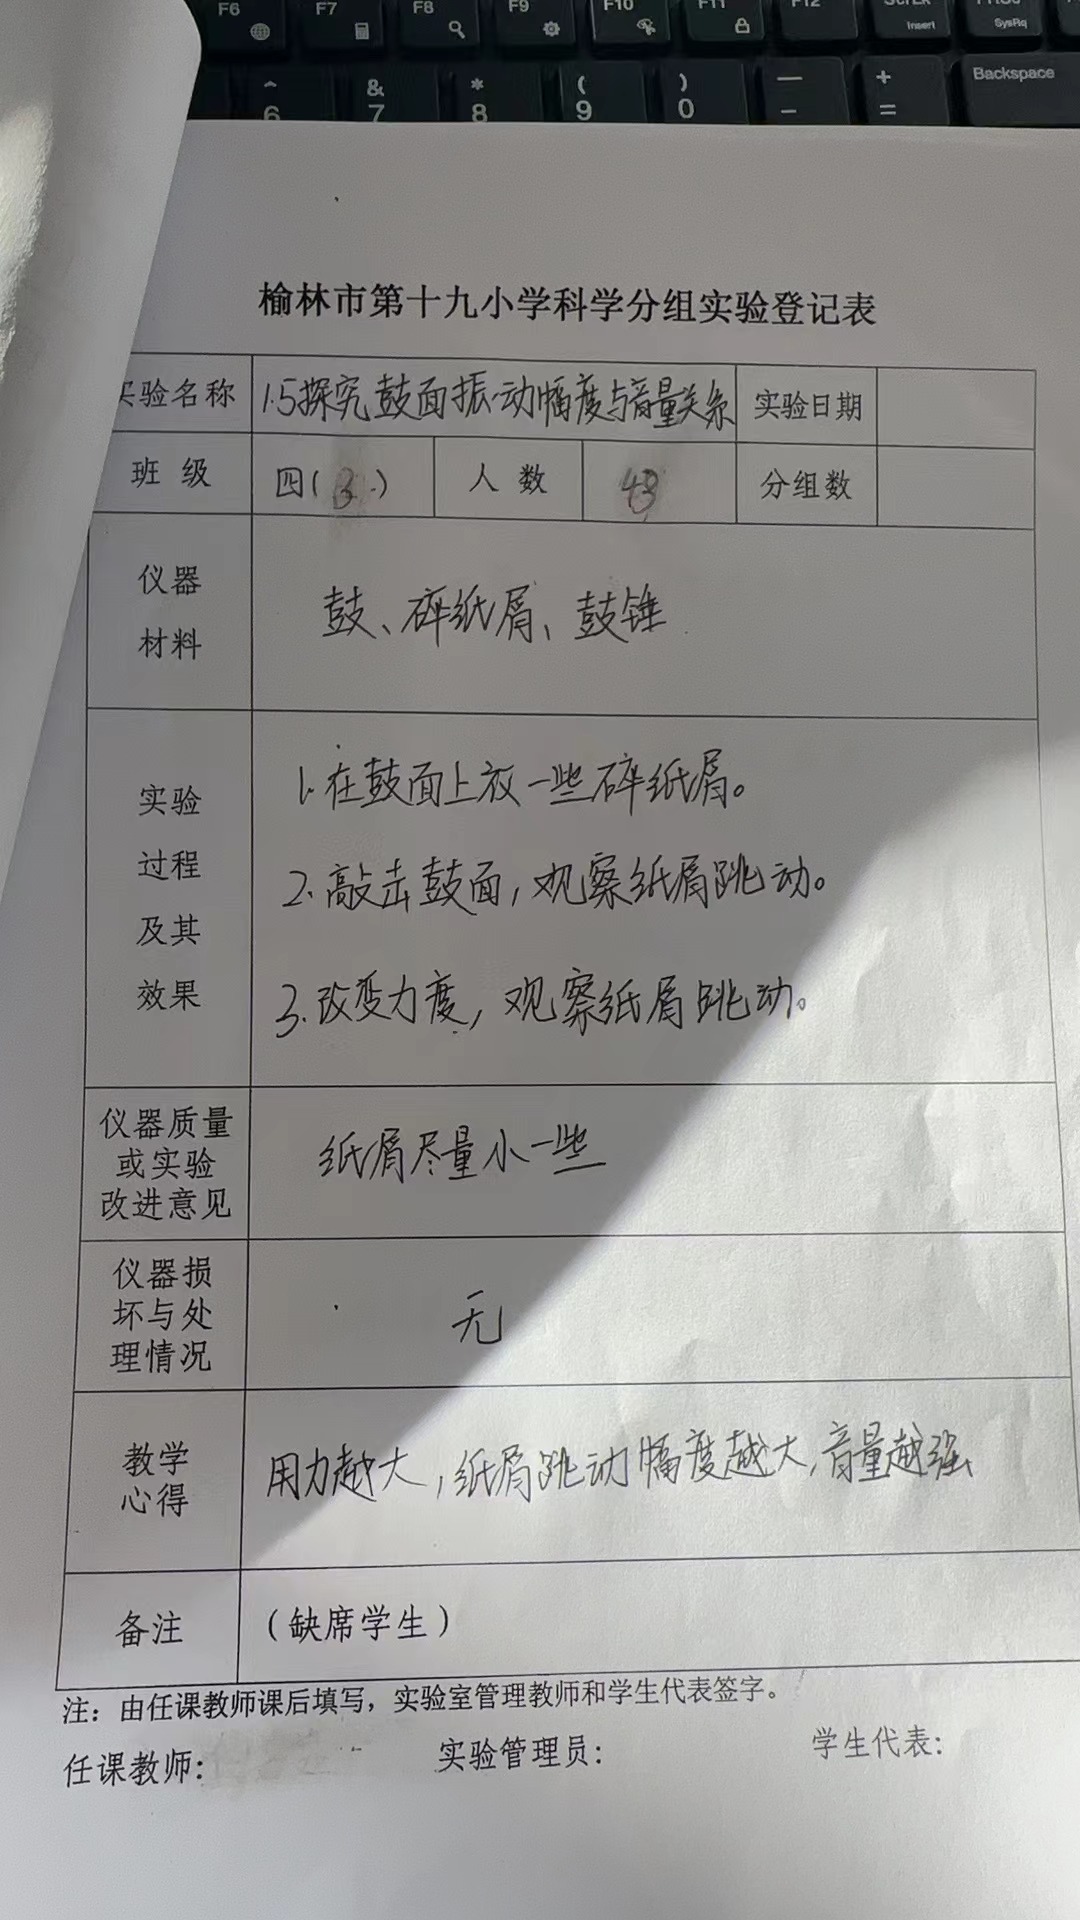 F6 F7 F8 F9 F10 F11 F12 Insert SysRq
^ & * ( ) — + Backspace
6 7 8 9 0 - =
榆林市第十九小学科学分组实验登记表
实验名称 1.5探究鼓面振动幅度与音量关系 实验日期
班 级 四(3) 人 数 43 分组数
仪器
材料
鼓、碎纸屑、鼓锤
实验
过程
及其
效果
1.在鼓面上放一些碎纸屑。
2.敲击鼓面,观察纸屑跳动。
3.改变力度,观察纸屑跳动。
仪器质量
或实验
改进意见
纸屑尽量小一些
仪器损
坏与处
理情况
无
教学
心得
用力越大,纸屑跳动幅度越大,音量越强
备注 (缺席学生)
注:由任课教师课后填写,实验室管理教师和学生代表签字。
任课教师: 实验管理员: 学生代表: